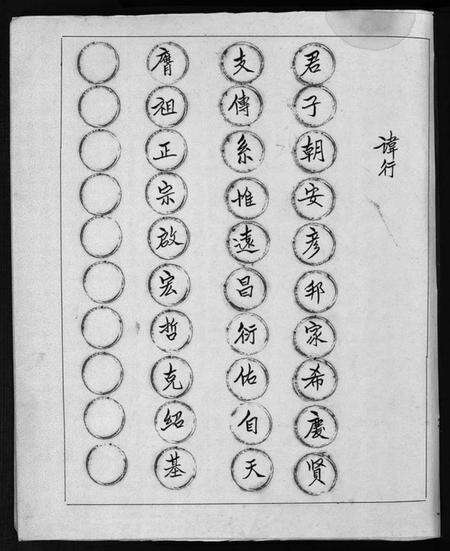 諱行
君子朝安彥邦家希慶賢
支傳系惟遠昌衍佑自天
膺祖正宗啟宏哲克紹基